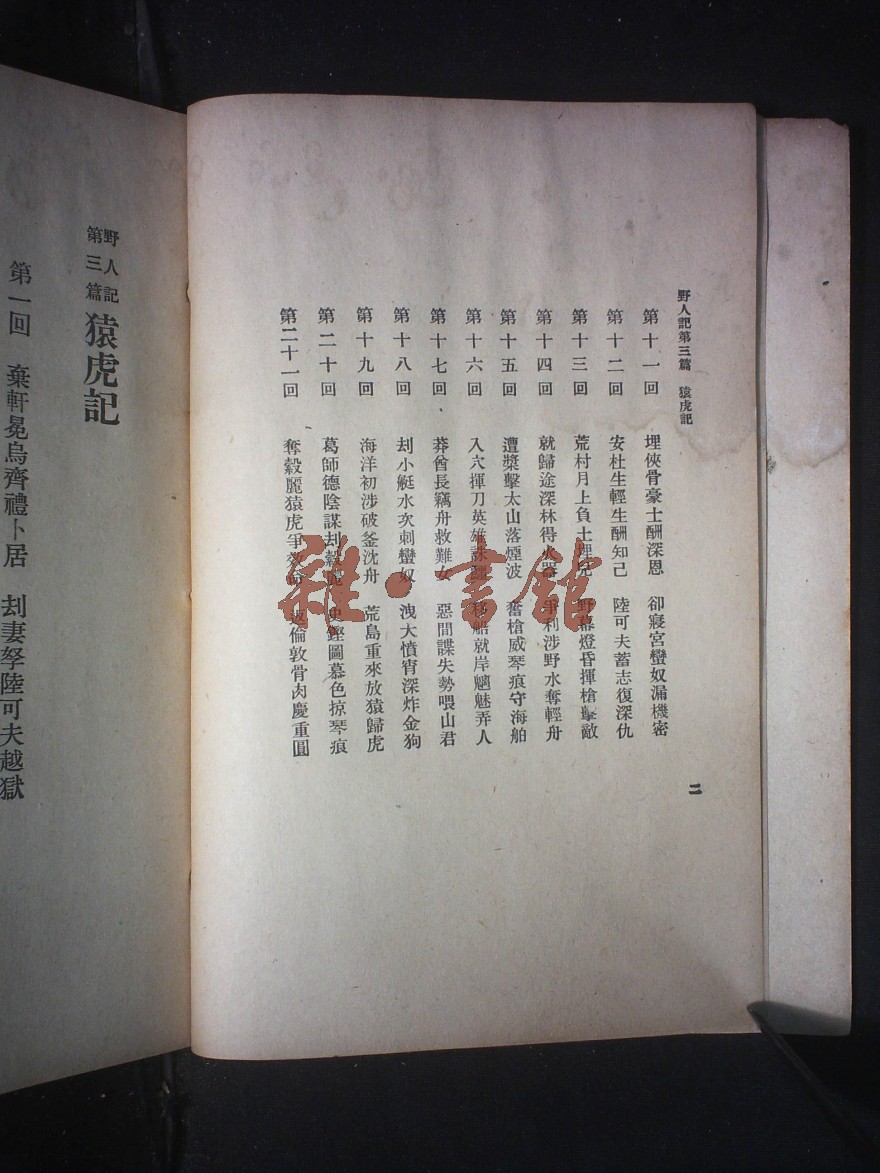 野人記第三篇　猿虎記
第十一回　埋俠骨豪士酬深恩　卻寢宮蠻奴漏機密
第十二回　安杜生輕生酬知己　陸可夫蓄志復深仇
第十三回　荒村月上負土埋兒　野幕燈昏揮槍擊敵
第十四回　就歸途深林得火器　爭利涉野水奪輕舟
第十五回　遭槳擊太山落煙波　奮槍威琴痕守海舶
第十六回　入穴揮刀英雄誅鱷　移船就岸魍魅弄人
第十七回　莽酋長竊舟救難女　惡間諜失勢喂山君
第十八回　刦小艇水次刺蠻奴　洩大憤宵深炸金狗
第十九回　海洋初涉破釜沈舟　荒島重來放猿歸虎
第二十回　葛師德陰謀刦縠麗　史鏗圖慕色掠琴痕
第二十一回　奪縠麗猿虎爭效命　返倫敦骨肉慶重圓
二
野人記
第三篇
猿虎記
第一回　棄軒冕烏齊禮卜居　刦妻孥陸可夫越獄
雜·書館